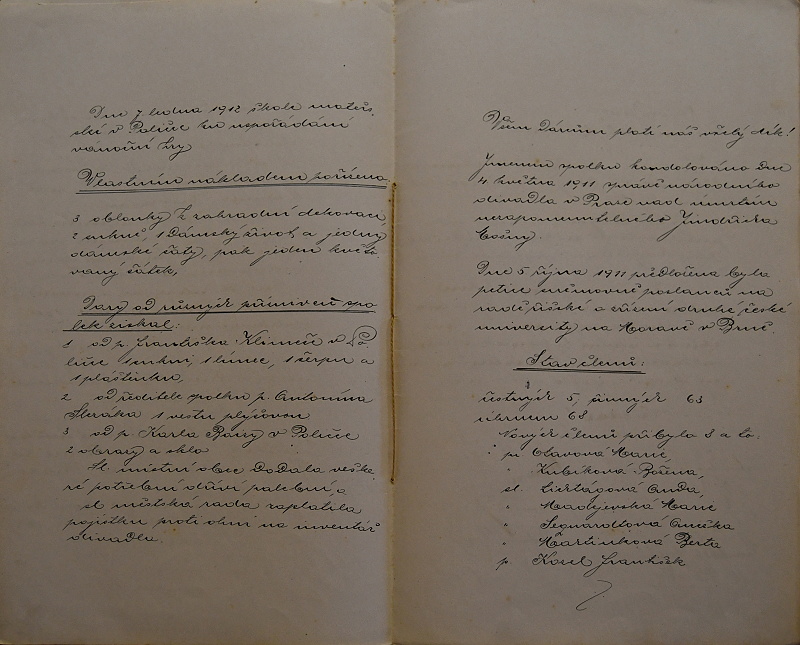 Dne 7 ledna 1912 škole mateř-
ské v Poličce ku uspořádání
vánoční hry
Vlastním nákladem pořízeno
3 oblouky k zahradní dekoraci,
2 sukně, 1 dámský život, a jedny
dámské šaty, pak jeden květo-
vaný šátek,
Dary od různých příznivců spo-
lek získal:
1 od p. Františka Klimeše v Po-
ličce 1 sukni, 1 límec, 1 šerpu a
1 pláštěnku,
2 od ředitele spolku p. Antonína
1 vestu plyšovou
3 od p. Karla v Poličce
2 obrazy a sklo
Sl. místní obec dodala veške-
ré potřební dříví palební, a
sl městská rada zaplatila
pojistku proti ohni na inventář
divadla.
Všem dárcům platí náš vřelý dík!
Jmenem spolku kondolováno dne
4 května 1911 správě národního
divadla v Praze nad úmrtím
nezapomenutelného Jindřicha
Mošny.
Dne 5 října 1911 předložena byla
petice sněmovně poslanců na
radě říšské o zřízení druhé české
university na Moravě v Brně.
Stav členů:
čestných 5, činných 63
úhrnem 68
Nových členů přibylo 8 a to:
pí Olavová Marie,
" Kubíková Božena,
sl. Anda,
" Matějovská Marie
" Anežka
" Martinková Berta
p. Karel František